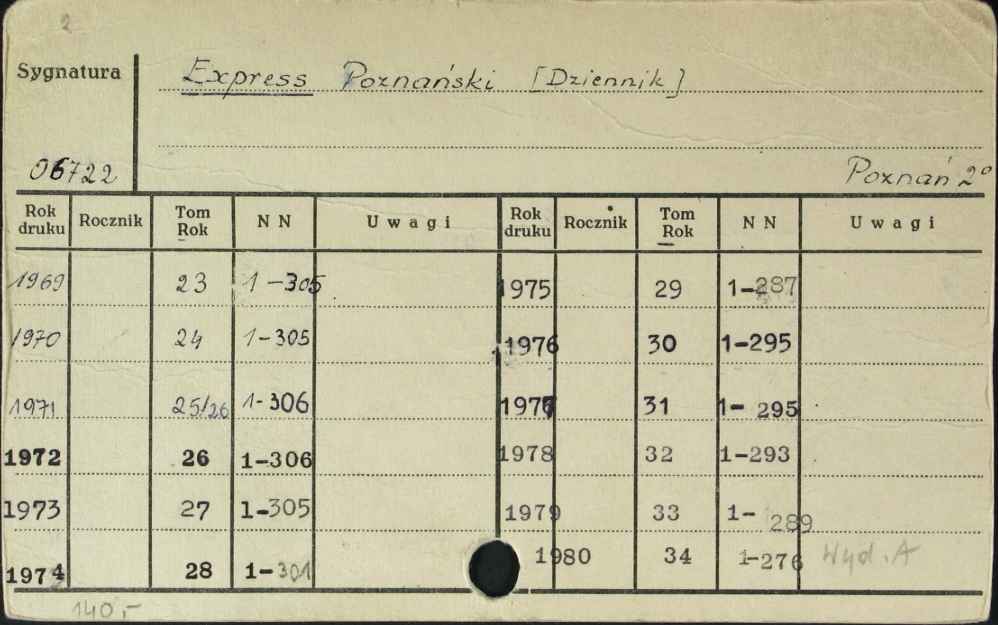 2
Sygnatura
Express Poznański [Dziennik]
06722
Poznań 2°
Rok druku Rocznik Tom Rok NN Uwagi Rok druku Rocznik Tom Rok NN Uwagi
1969 23 1-305 1975 29 1-287
1970 24 1-305 1976 30 1-295
1971 25/26 1-306 1977 31 1-295
1972 26 1-306 1978 32 1-293
1973 27 1-305 1979 33 1-289
1974 28 1-301 1980 34 1-276 Wyd. A
140,-